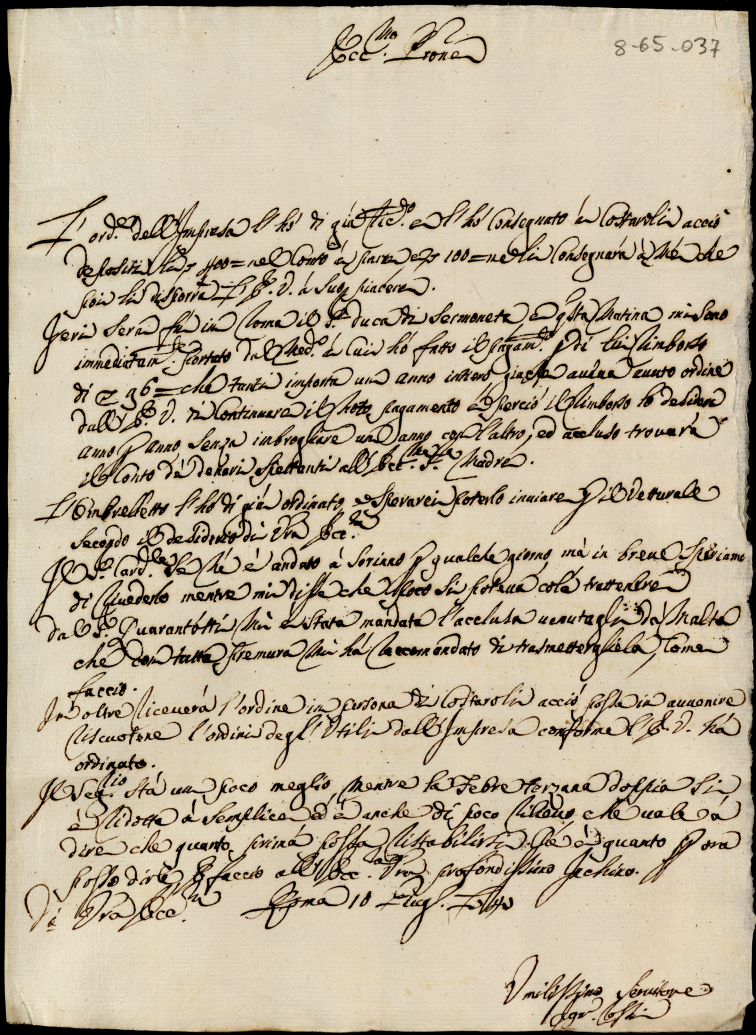 Ecc.mo Prone
8-65-037
L'ord.e dell'Impresa l'hò di già e l'hò consegnato à Costaroli acciò
depositi li 400= nel Conto à parte e 100= ne li consegnarà à Mè che
poi ne disporrà l'E. V. à suo piacere.
Ieri sera fù in Roma il S.r Duca di Sermoneta, e q.sta Matina mi sono
immediatam.te portato dal Med.o à cui hò fatto il pagam.to di lui rimborso
di 36= che tanti importa un anno intiero già che aveva auuto ordine
dall'E. V. di continuare il sud.o pagamento, e perciò il rimborso lo desidera
anno p anno, senza imbrogliare un anno con l'altro, ed accluso trouarà
il Conto dà denari spettanti all'Ecc.ma S.ra Madre.
L'Ombrelletto l'hò di già ordinato, e sperarei poterlo inuiare p il Vetturale
secondo il desiderio di Vra Ecc.za
Il S.r Card.le è andato à Soriano p qualche giorno, mà in breve speriamo
di riuederlo mentre mi disse che poco si poteua colà trattenere
dal S.r Quarantotti Mi è stata mandata l'acclusa uenutagli dà Malta
che con tutta premura Mi hà raccomandato di trasmettergliela, come
faccio.
In oltre riceuerà l'ordine in persona di Costaroli acciò possa in auuenire
riscuotere l'ordini degl'Utili dall'Impresa conforme l'E. V. hà
ordinato.
Il Seg.rio stà un poco meglio, mentre la Febre terzana doppia si
è ridotta à semplice ed è anche di poco rilievo, che uale à
dire che quanto prima possa ristabilirsi. Che è quanto p ora
posso dirle e faccio all'Ecc.za Vra profondissimo Inchino.
Di Vra Ecc.za Roma 10 Lug.
Umilissimo Seruitore